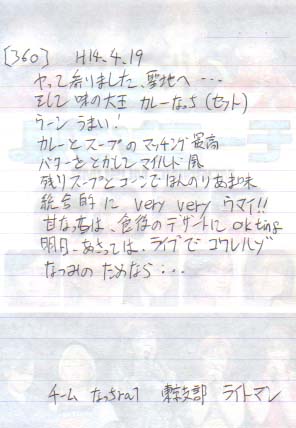 [360] H14.4.19
やって参りました、聖地へ…
そして 味の大王 カレーなっち(セット)
うーン うまい!
カレーとスープの マッチング最高
バターをとかしてマイルド風
残りスープとコーンでほんのりあま味
総合的に very very ウマイ!!
甘なっちは、食後のデザートに ok ting
明日、あさっては、ライブで コワレルゾ
なつみの ためなら…
チーム なっちraる 東京支部 ライトマン